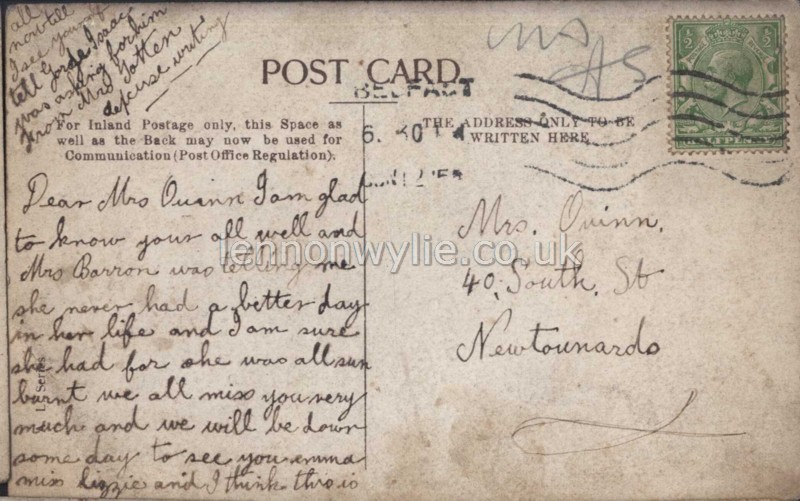 all
now till
I see yourself
tell Isaac
was asking for him
from Mrs Totten
writing
Mrs
POST CARD.
BELFAST
6. 30 PM
For Inland Postage only, this Space as
well as the Back may now be used for
Communication (Post Office Regulation).
THE ADDRESS ONLY TO BE
WRITTEN HERE
½ ½
HALFPENNY
Dear Mrs Quinn I am glad
to know your all well and
Mrs Barron was telling me
she never had a better day
in her life and I am sure
she had for she was all sun
burnt we all miss you very
much and we will be down
some day to see you emma
miss lizzie and I think this is
Mrs. Quinn.
40, South, St
Newtownards
Series
lennonwylie.co.uk